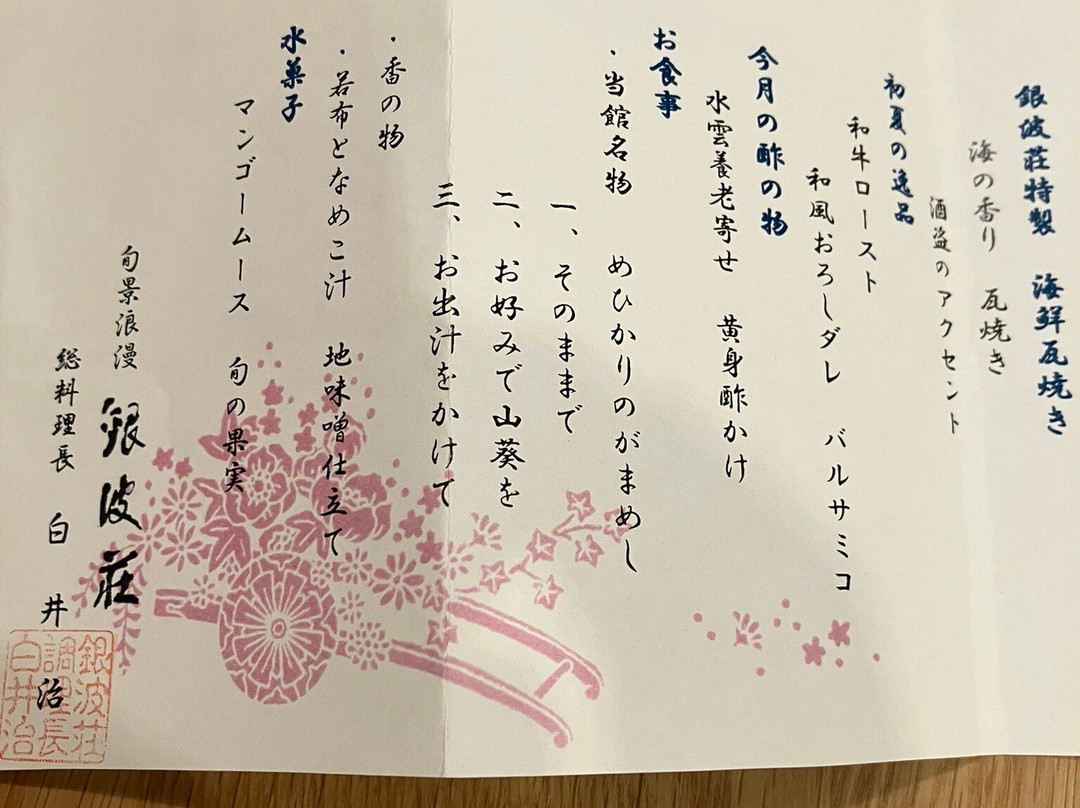 銀波荘特製　海鮮瓦焼き
海の香り　瓦焼き
酒盗のアクセント
初夏の逸品
和牛ロースト
和風おろしダレ　バルサミコ
今月の酢の物
水雲養老寄せ　黄身酢かけ
お食事
・当館名物　めひかりのがまめし
一、そのままで
二、お好みで山葵を
三、お出汁をかけて
・香の物
・若布となめこ汁　地味噌仕立て
水菓子
マンゴームース　旬の果実
旬景浪漫　銀波荘
総料理長　白井　治
銀波荘
調理長
白井治